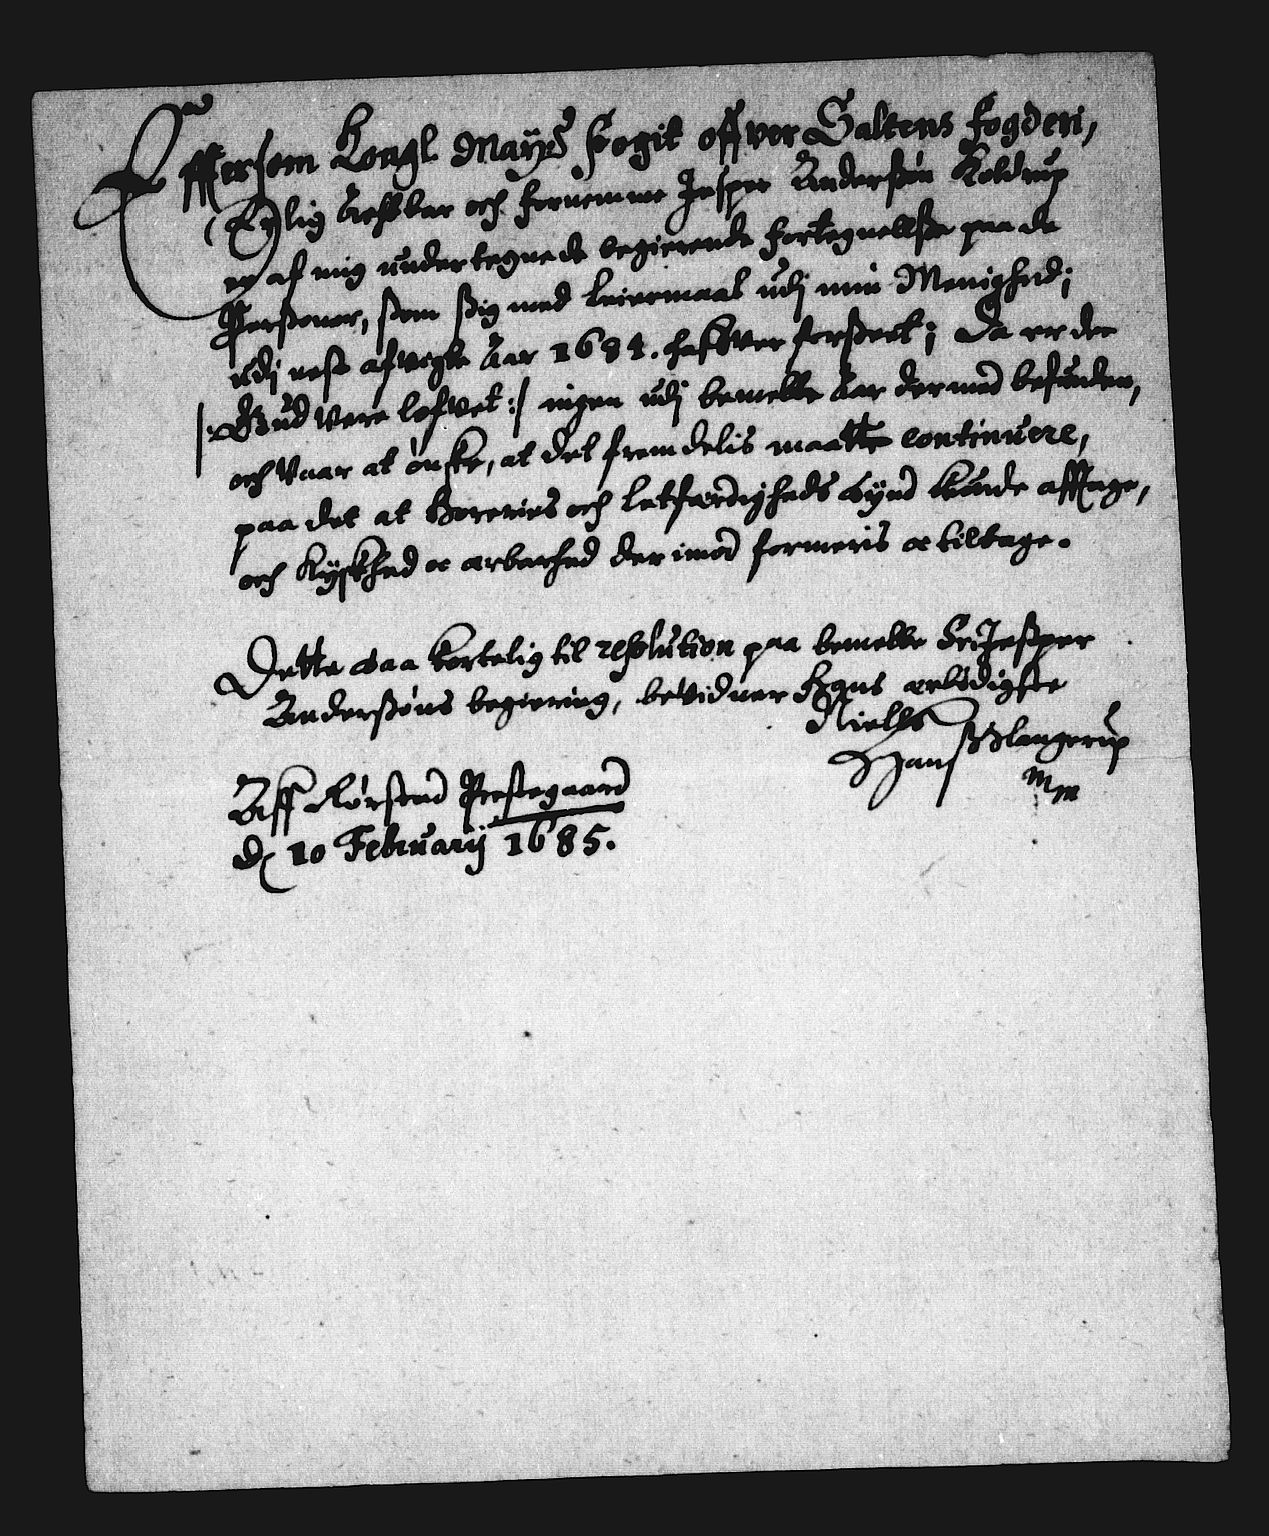 Effterſom Kongl Mayts fogit offver Saltens fogderi,
Erlig Actbar och fornemme Jesper Anderſøn Koldrup
er af mig undertegnede begierende fortegnellſe paa de
Perſſoner, ſom ſſig med leiermaal udj min Menighed;
udj neſt afvigte Aar 1684. haffver forſſeet; Da er der
|: Gud være lofvet :| ingen udj bemelte Aar dermed befunden,
och vaar at ønſke, at det fremdelis maatte continuere,
paa det at Horeries och letferdigheds Synd kunde afftage,
och Kyſkhed oc ærbarhed der imod formeris oc tiltage.
Dette saa kortelig til reſolution paa bemelte Sr Jeſper
Anderſſøns begiering, bevidner hans ærbødigſte
Niels
Hansſ Slangerup
Mm
Aff Rørstad Preſtegaard
d. 10 Februarij 1685.